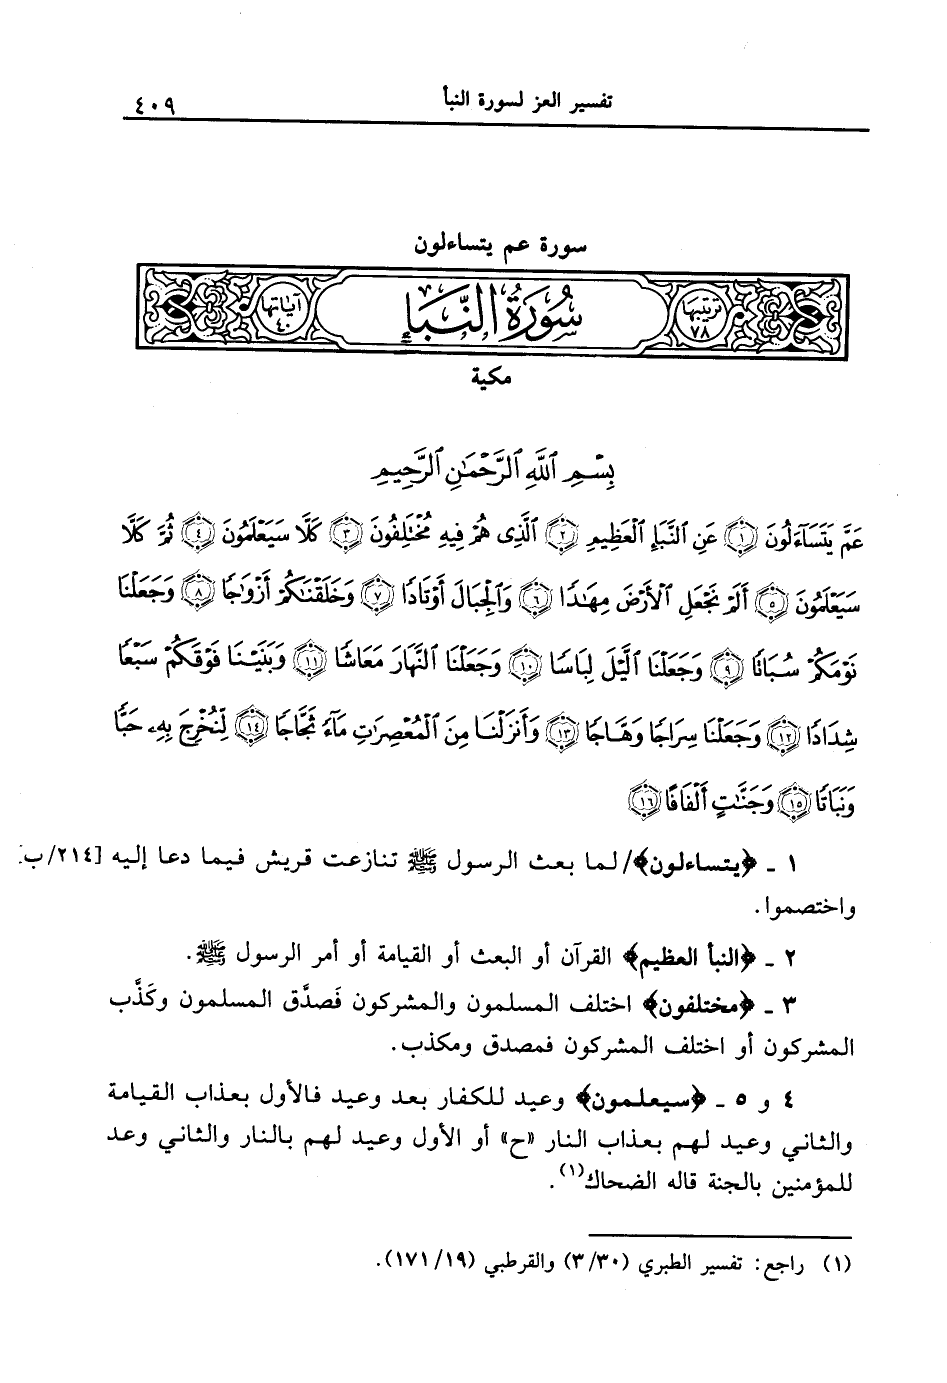 تفسير العز لسورة النبأ ٤٠٩
سورة عم يتساءلون
ترتيبها ٧٨ سُورَةُ النَّبَإِ آياتها ٤٠
مكية
بِسْمِ ٱللَّهِ ٱلرَّحْمَٰنِ ٱلرَّحِيمِ
عَمَّ يَتَسَآءَلُونَ ﴿١﴾ عَنِ ٱلنَّبَإِ ٱلْعَظِيمِ ﴿٢﴾ ٱلَّذِى هُمْ فِيهِ مُخْتَلِفُونَ ﴿٣﴾ كَلَّا سَيَعْلَمُونَ ﴿٤﴾ ثُمَّ كَلَّا
سَيَعْلَمُونَ ﴿٥﴾ أَلَمْ نَجْعَلِ ٱلْأَرْضَ مِهَٰدًا ﴿٦﴾ وَٱلْجِبَالَ أَوْتَادًا ﴿٧﴾ وَخَلَقْنَٰكُمْ أَزْوَٰجًا ﴿٨﴾ وَجَعَلْنَا
نَوْمَكُمْ سُبَاتًا ﴿٩﴾ وَجَعَلْنَا ٱلَّيْلَ لِبَاسًا ﴿١٠﴾ وَجَعَلْنَا ٱلنَّهَارَ مَعَاشًا ﴿١١﴾ وَبَنَيْنَا فَوْقَكُمْ سَبْعًا
شِدَادًا ﴿١٢﴾ وَجَعَلْنَا سِرَاجًا وَهَّاجًا ﴿١٣﴾ وَأَنزَلْنَا مِنَ ٱلْمُعْصِرَٰتِ مَآءً ثَجَّاجًا ﴿١٤﴾ لِّنُخْرِجَ بِهِۦ حَبًّا
وَنَبَاتًا ﴿١٥﴾ وَجَنَّٰتٍ أَلْفَافًا ﴿١٦﴾
١ ـ ﴿يتساءلون﴾/ لما بعث الرسول ﷺ تنازعت قريش فيما دعا إليه [٢١٤/ب]
واختصموا.
٢ ـ ﴿النبأ العظيم﴾ القرآن أو البعث أو القيامة أو أمر الرسول ﷺ.
٣ ـ ﴿مختلفون﴾ اختلف المسلمون والمشركون فَصدَّق المسلمون وكَذَّب
المشركون أو اختلف المشركون فمصدق ومكذب.
٤ و ٥ ـ ﴿سيعلمون﴾ وعيد للكفار بعد وعيد فالأول بعذاب القيامة
والثاني وعيد لهم بعذاب النار «ح» أو الأول وعيد لهم بالنار والثاني وعد
للمؤمنين بالجنة قاله الضحاك(١).
(١) راجع: تفسير الطبري (٣/٣٠) والقرطبي (١٧١/١٩).